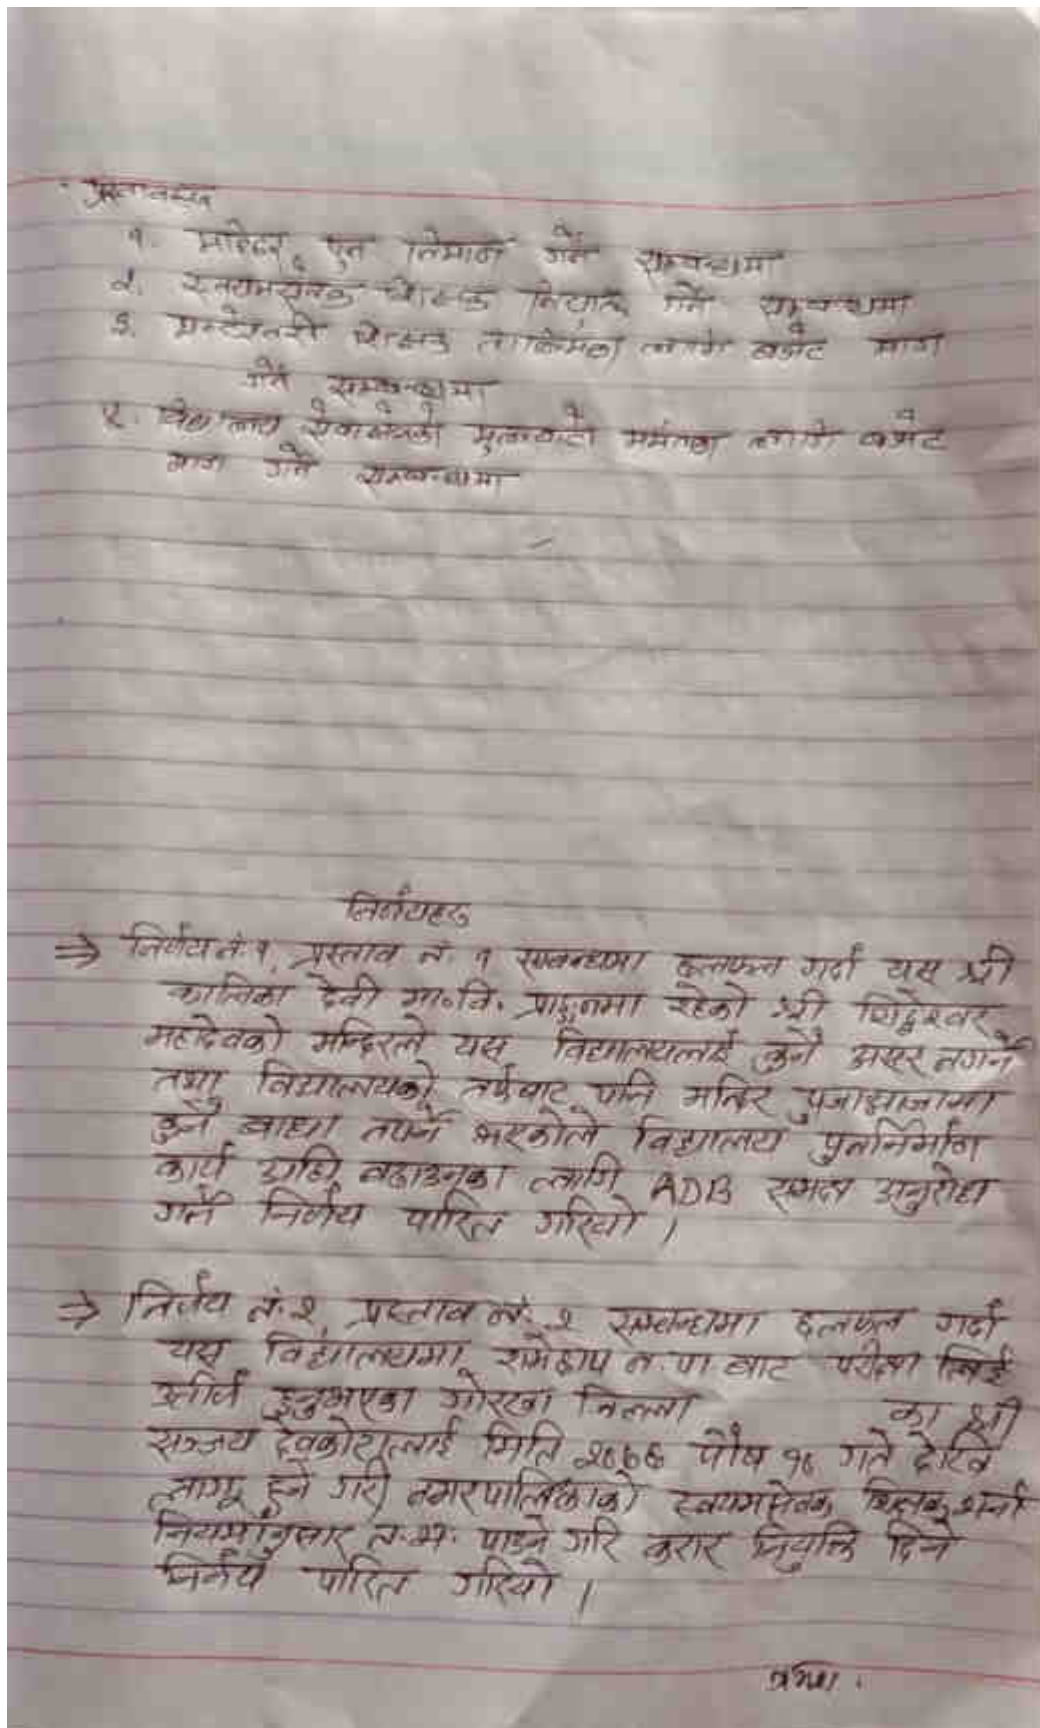 प्रस्तावहरु
१. मन्दिर पुन निर्माण गर्ने सम्बन्धमा
२. स्वयमसेवक शिक्षक नियुक्ति गर्ने सम्बन्धमा
३. मन्टेश्वरी शिक्षक तालिमका लागि बजेट माग
गर्ने सम्बन्धमा
४. विद्यालय सेवाक्षेत्रको मुलबाटो मर्मतका लागि बजेट
माग गर्ने सम्बन्धमा
निर्णयहरु
⇒ निर्णय नं. १, प्रस्ताव नं. १ सम्बन्धमा छलफल गर्दा यस श्री
कालिका देवी मा०वि. प्राङ्गनमा रहेको श्री सिद्धेश्वर
महादेवको मन्दिरले यस विद्यालयलाई कुनै असर नगर्ने
तथा विद्यालयको तर्फबाट पनि मन्दिर पुजाआजामा
कुनै बाधा नपर्ने भएकोले विद्यालय पुर्ननिर्माण
कार्य अघि बढाउनका लागि ADB समक्ष अनुरोध
गर्ने निर्णय पारित गरियो ।
⇒ निर्णय नं. २ प्रस्ताव नं. २ सम्बन्धमा छलफल गर्दा
यस विद्यालयमा रामेछाप न.पा बाट परीक्षा लिई
उत्तीर्ण हुनुभएका गोरखा जिल्ला का श्री
सञ्जय देवकोटालाई मिति २०७६ पौष १६ गते देखि
लागू हुने गरी नगरपालिकाको स्वयमसेवक शिक्षक भर्ना
नियमानुसार त.भ. पाउने गरि करार नियुक्ति दिने
निर्णय पारित गरियो ।
क्रमश .